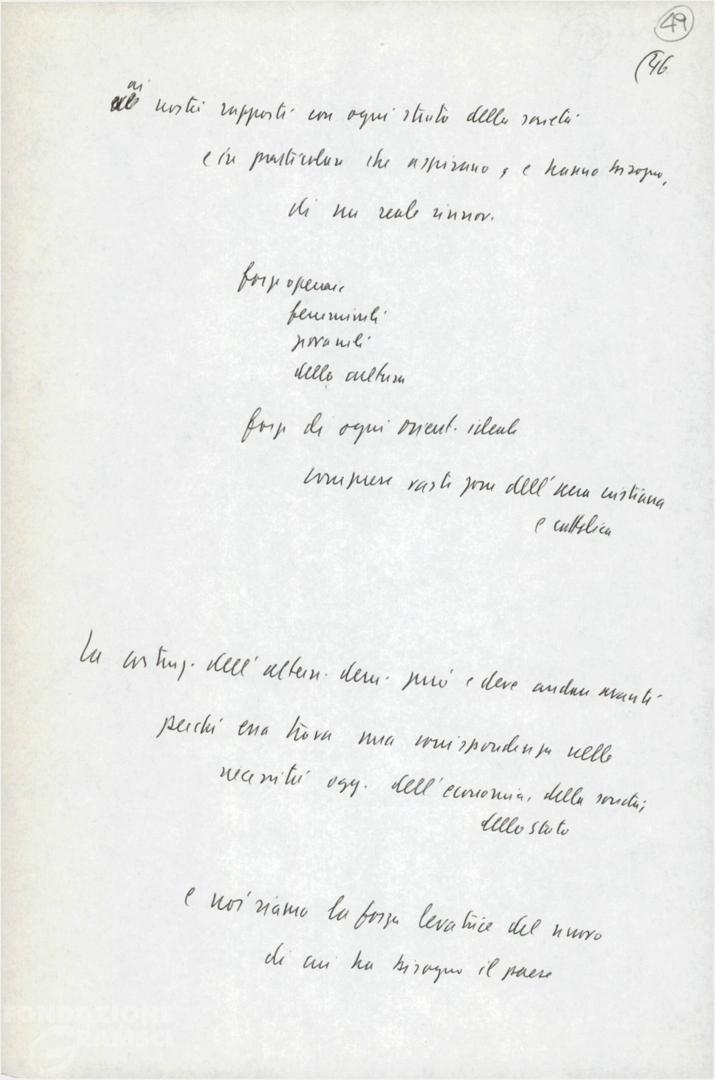 49
46
ai
nostri rapporti con ogni strato della società
e in particolare che aspirano, e hanno bisogno,
di un reale rinnov.
forze operaie
femminili
giovanili
della cultura
forze di ogni orient. ideale
comprese vaste zone dell'area cristiana
e cattolica
La costruz. dell'altern. dem. può e deve andare avanti
perché essa trova una corrispondenza nelle
necessità ogg. dell'economia, della società,
dello stato
e noi siamo la forza levatrice del nuovo
di cui ha bisogno il paese
FONDAZIONE
GRAMSCI